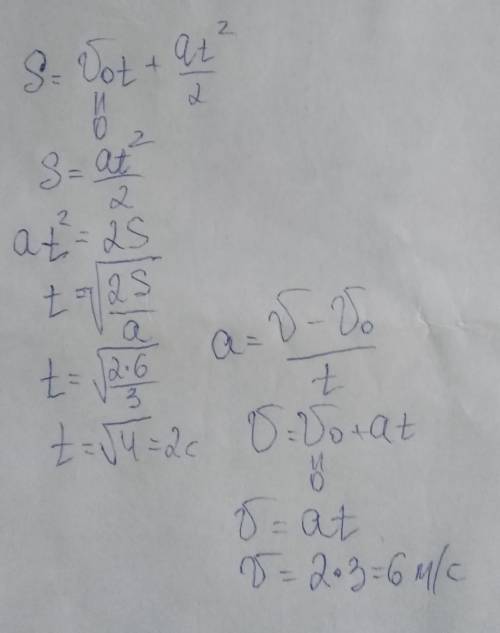 S = υ₀t + at²/2
"
0
S = at²/2
at² = 2S
t = √(2S/a)
t = √(2·6/3)
t = √4 = 2c
a = (υ - υ₀)/t
υ = υ₀ + at
"
0
υ = at
υ = 2·3 = 6 м/с